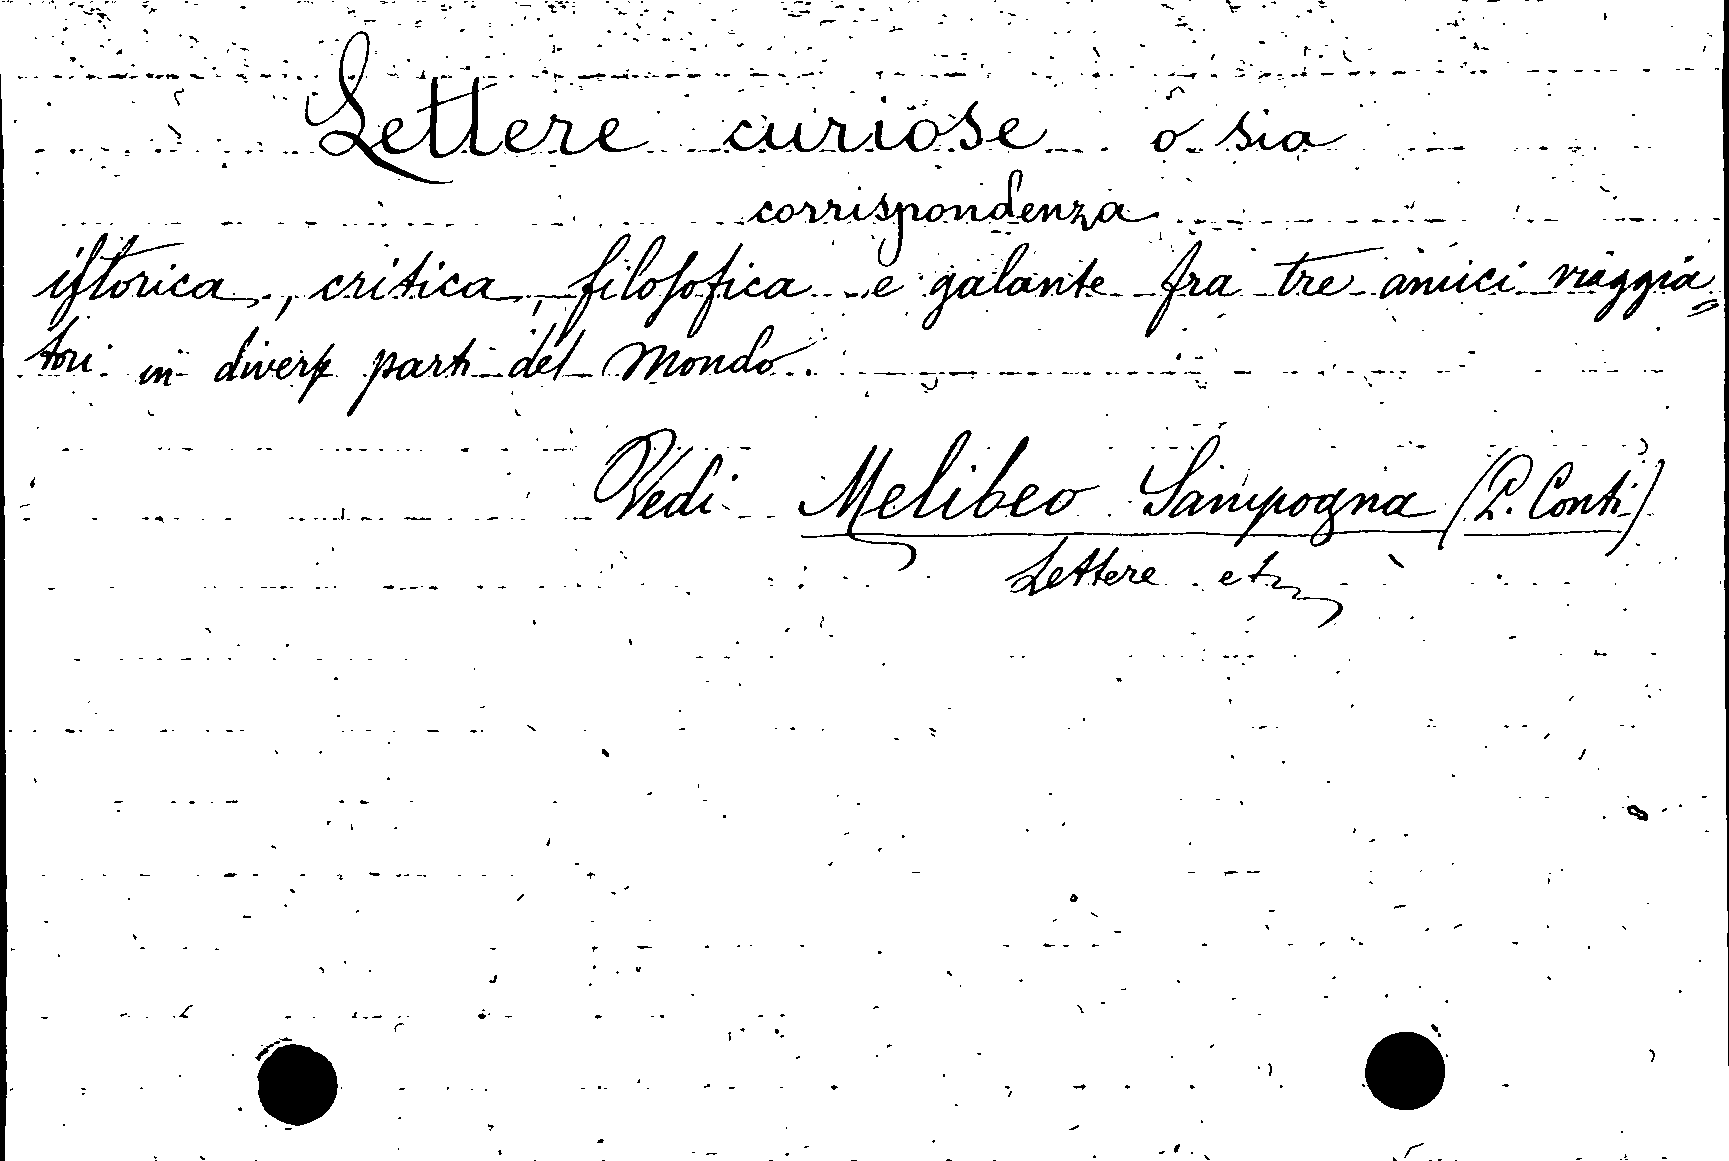 Lettere curiose o sia
corrispondenza
iſtorica, critica, filoſofica e galante fra tre amici viaggia=
tori in diverſe parti del Mondo.
Vedi Melibeo Sampogna (P. Conti)
Lettere etc